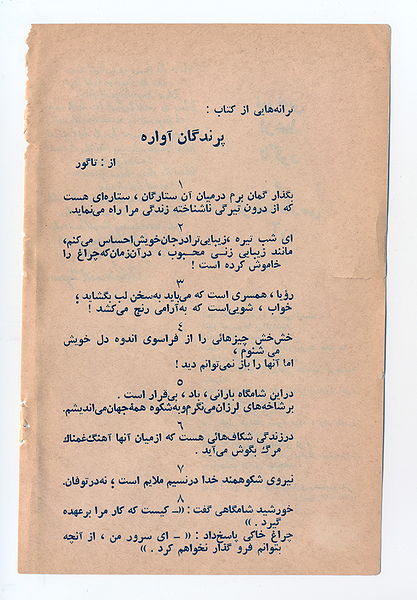 ترانه‌هایی از کتاب :
پرندگان آواره
از : تاگور
۱
بگذار گمان برم درمیان آن ستارگان ، ستاره‌ای هست
که از درون تیرگی ناشناخته زندگی مرا راه می‌نماید.
۲
ای شب تیره ،زیبایی‌ترادرجان‌خویش‌احساس می‌کنم،
مانند زیبایی زنـی محبـوب ، درآن‌زمان‌که‌چراغ را
خاموش کرده است !
۳
رؤیا ، همسری است که می‌باید به‌سخن لب بگشاید ؛
خواب ، شویی‌است که به‌آرامی رنج می‌کشد !
۴
خش‌خش چیزهائی را از فراسوی اندوه دل خویش
می شنوم ،
اما آنها را باز نمی‌توانم دید !
۵
دراین شامگاه بارانی ، باد ، بی‌قرار است .
برشاخه‌های لرزان‌می‌نگرم‌وبه‌شکوه همه‌جهان‌می‌اندیشم.
۶
درزندگی شکاف‌هائی هست که ازمیان آنها آهنگ‌غمناك
مرگ بگوش می‌آید .
۷
نیروی شکوهمند خدا درنسیم ملایم است ؛ نه‌درتوفان.
۸
خورشید شامگاهی گفت : «ـ کیست که کار مرا برعهده
گیرد . »
چراغ خاکی پاسخ‌داد : « ـ ای سرور من ، از آنچه
بتوانم فرو گذار نخواهم کرد . »